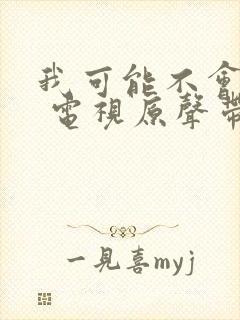 我可能不會
電視原聲帶
一見喜myj